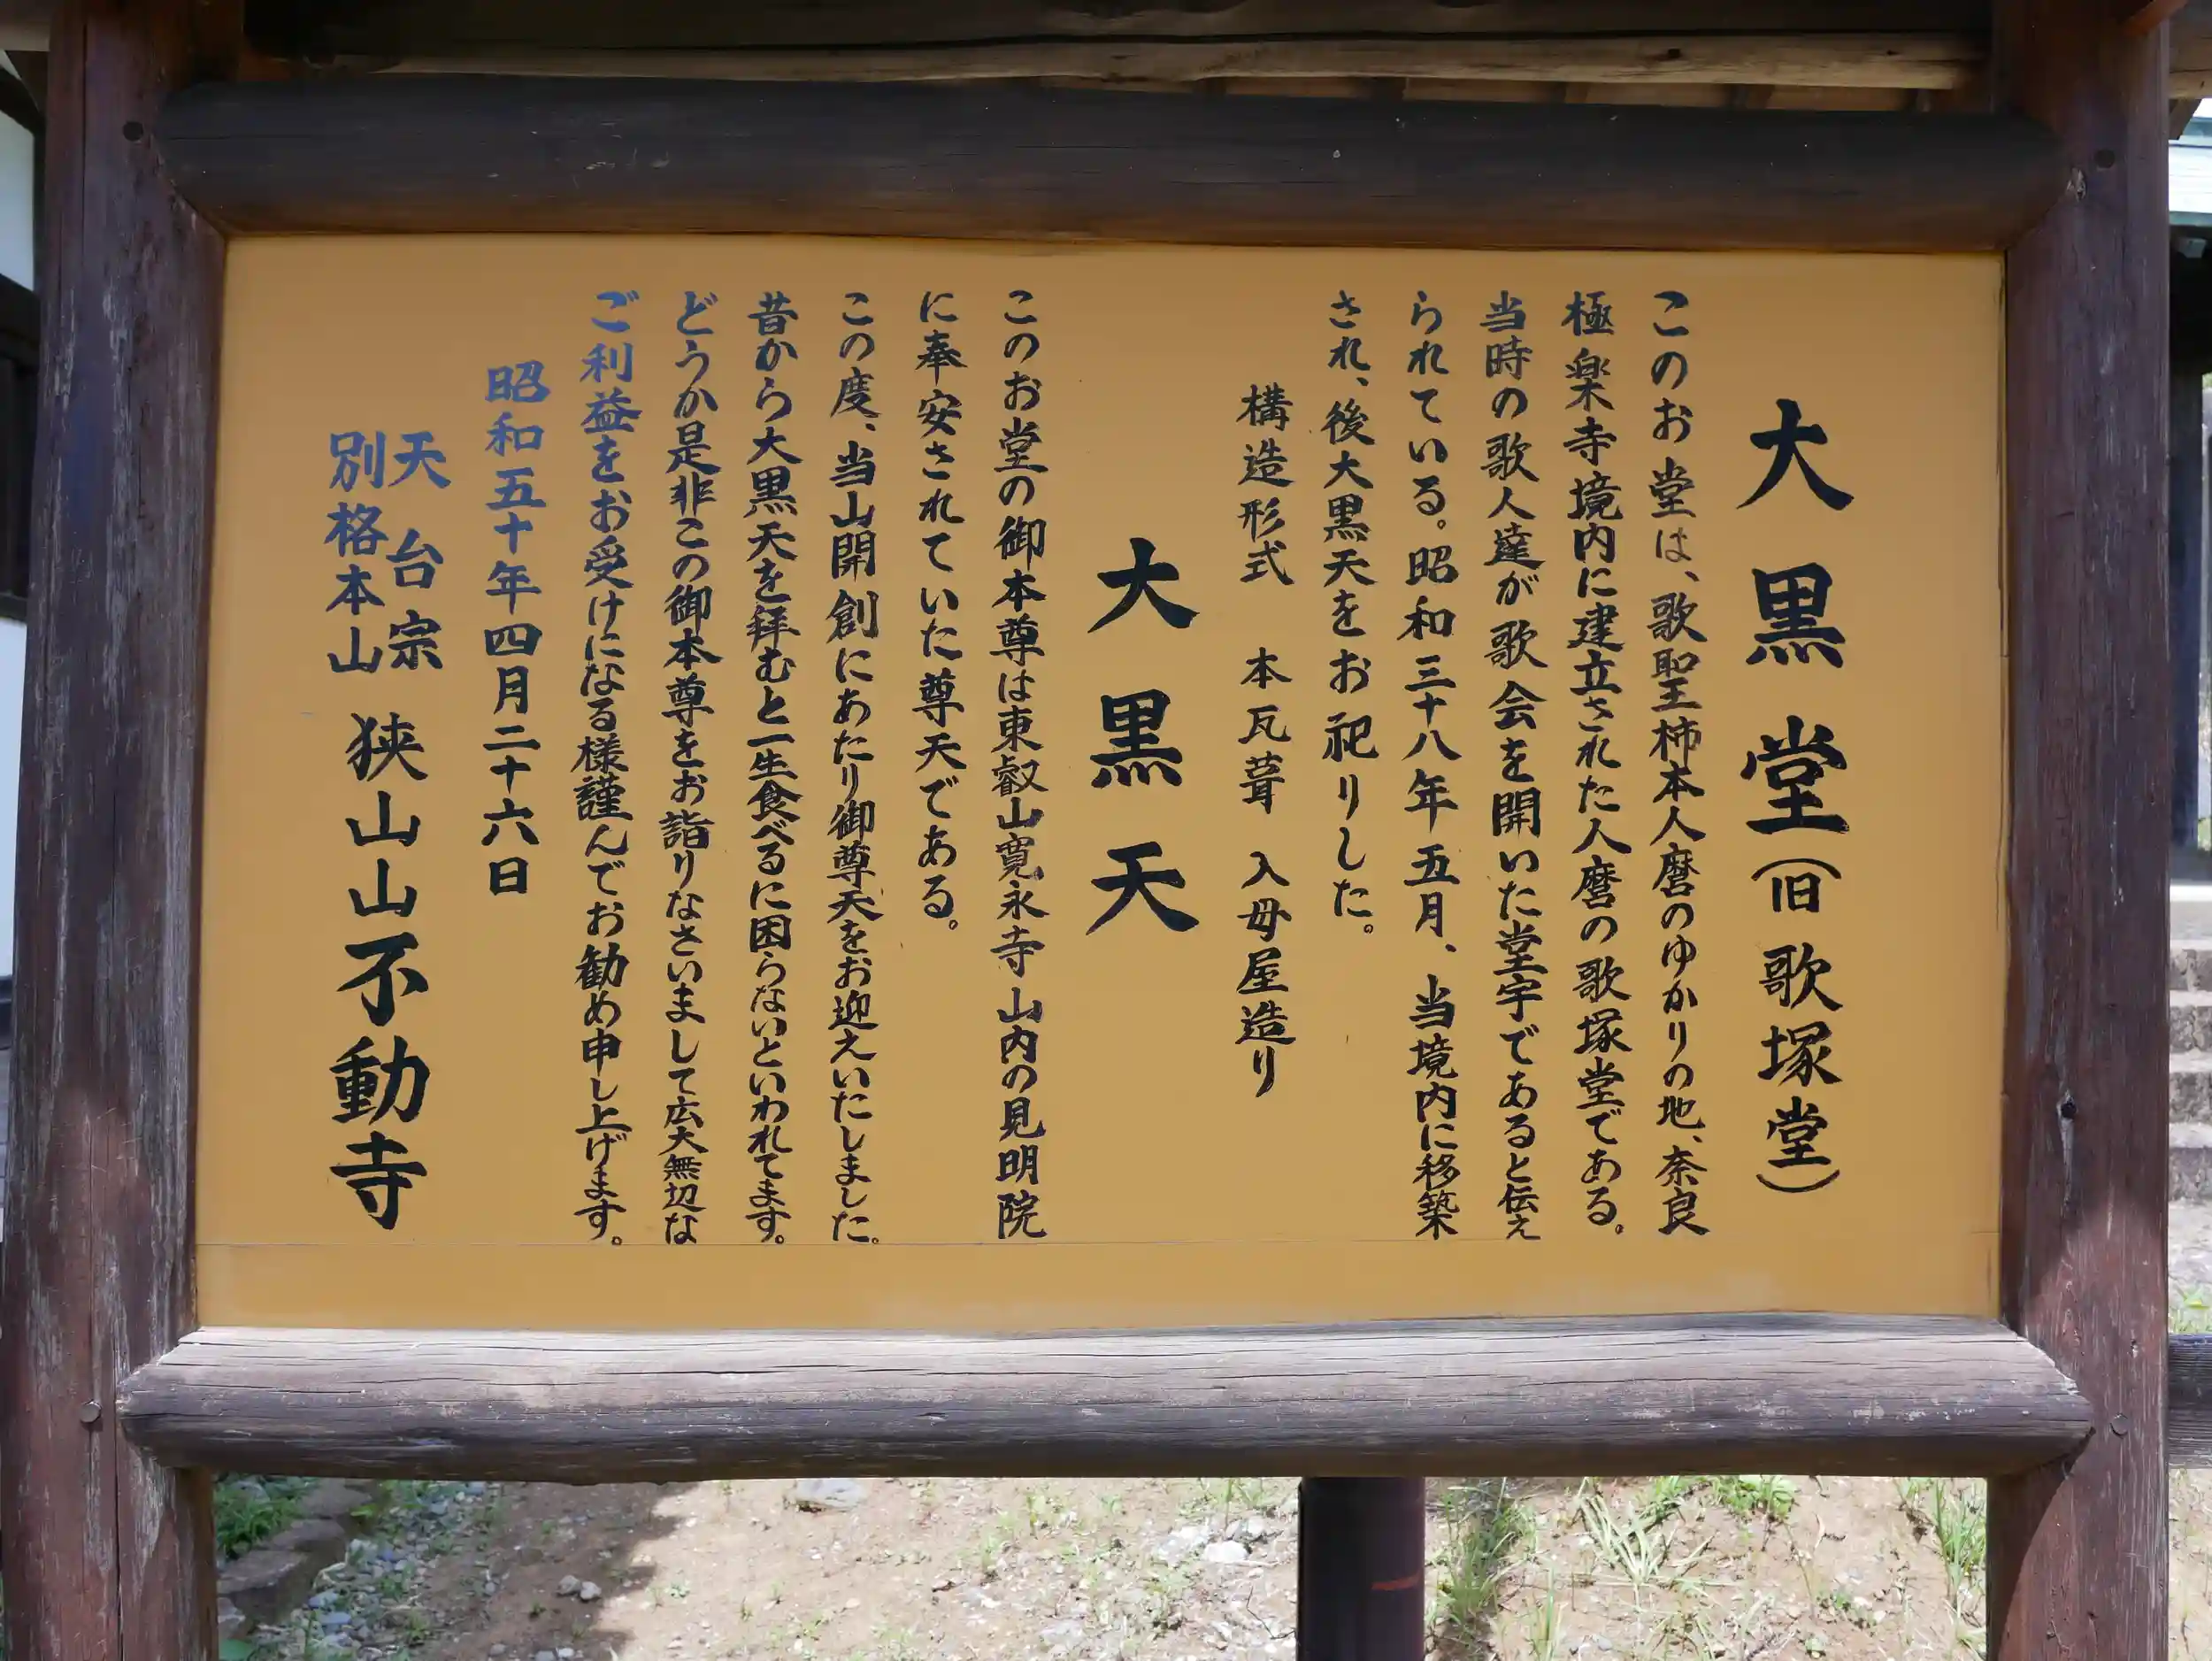 大黒堂(旧歌塚堂)
このお堂は、歌聖柿本人麿のゆかりの地、奈良
極楽寺境内に建立された人麿の歌塚堂である。
当時の歌人達が歌会を開いた堂宇であると伝え
られている。昭和三十八年五月、当境内に移築
され、後大黒天をお祀りした。
構造形式 本瓦葺 入母屋造り
大黒天
このお堂の御本尊は東叡山寛永寺山内の見明院
に奉安されていた尊天である。
この度、当山開創にあたり御尊天をお迎えいたしました。
昔から大黒天を拝むと一生食べるに困らないといわれてます。
どうか是非この御本尊をお詣りなさいまして広大無辺な
ご利益をお受けになる様謹んでお勧め申し上げます。
昭和五十年四月二十六日
天台宗
別格本山
狭山山不動寺